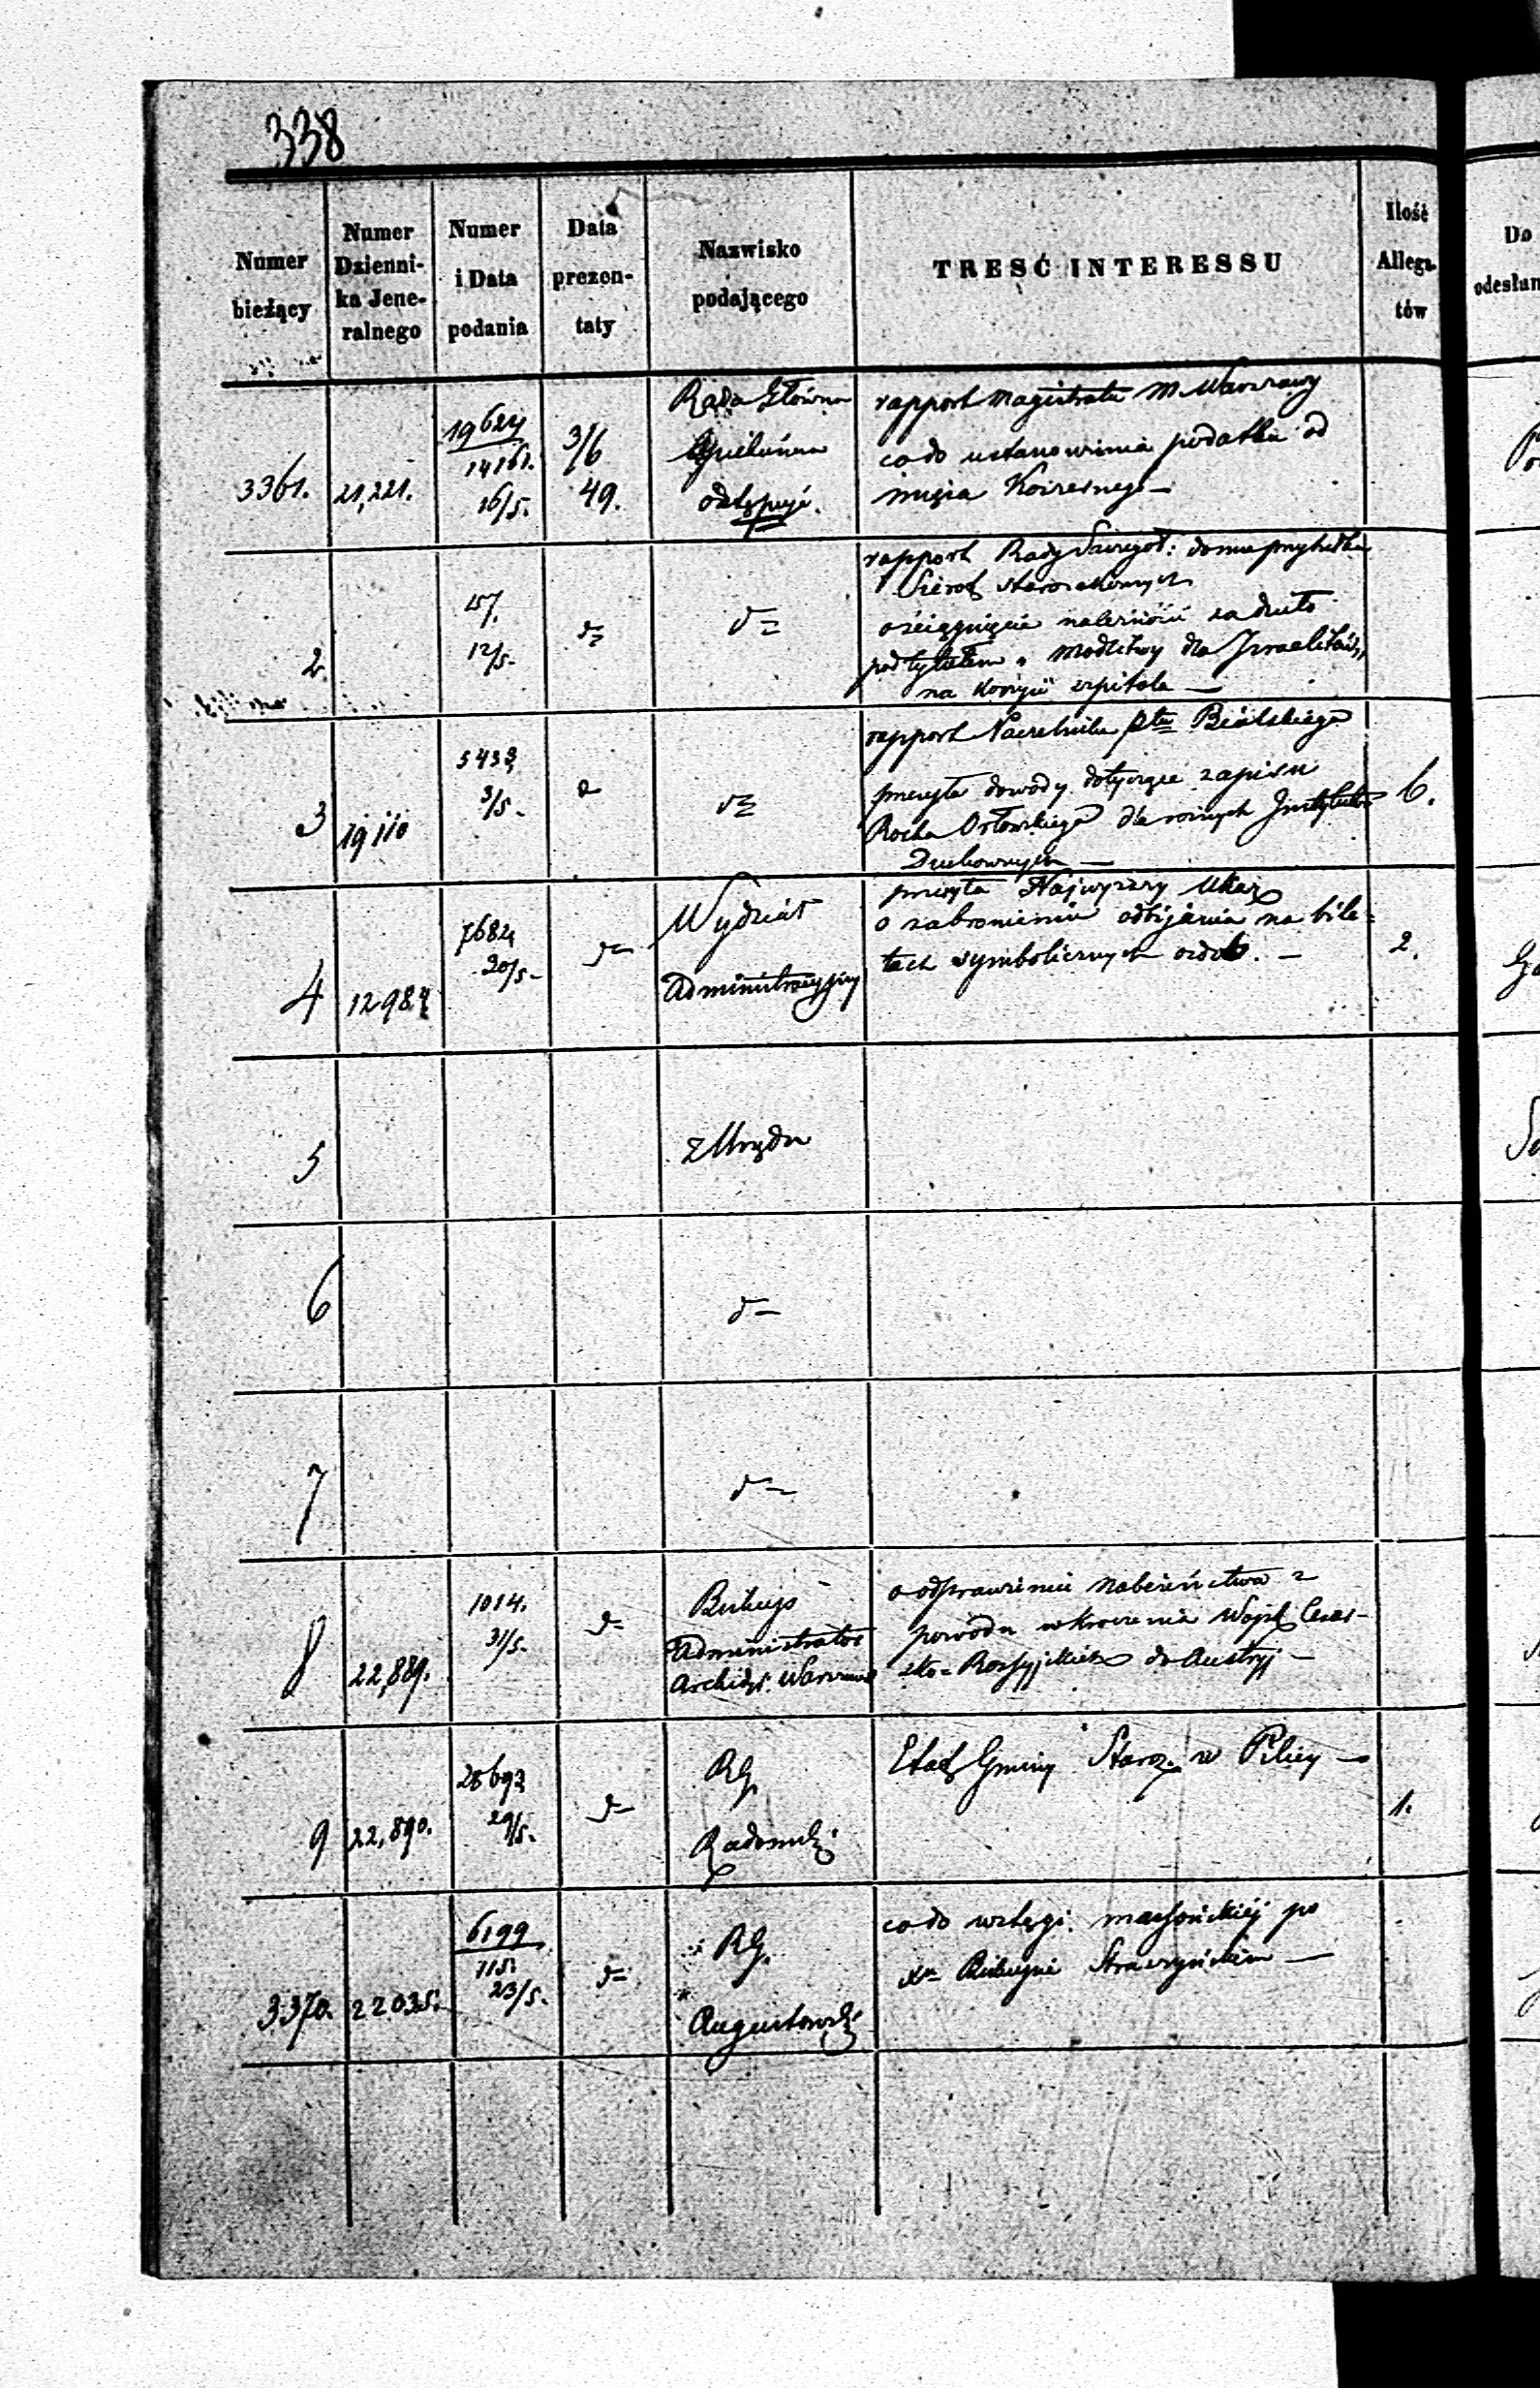 338
Numer bieżący
Numer Dzienni- ka Jene- ralnego
Numer i Data podania
Data prezen- taty
Nazwisko podającego
TRESĆ INTERESSU
Ilość Allega- tów
Do odesłan
3361. 21,221. 19624 14161. 16/5. 3/6 49.
Rada Główna
Opiekuńcza
odstępuje.
rapport Magistratu M. Warszawy
co do ustanowienia podatku od
mięsa Koszernego —
2. 157. 12/5. d=
d=
rapport Rady Szczegół: domu przytułku
Sierot starozakonnych
o ściągnięcie należności za dzieło
pod tytułem „Modlitwy dla Izraelitów„
na korzyść szpitala —
3 19110 5433 3/5. d
d=
rapport Naczelnika Ptu Bialskiego
przesyła dowody dotyczące zapisu
Rocha Orłowskiego dla różnych Instytutów
Duchownych —
6.
4 12984 7684 20/5- d=
Wydział
Administracyjny
przesyła Najwyższy Ukaz
o zabronieniu odbijania na bile=
tach symbolicznych ozdób. —
2.
5
z Urzędu
6
d=
7
d=
8 22,889. 1014. 31/5. d=
Biskup
Administrator
Archidi: Warszaws
o odprawienie nabożeństwa z
powodu wkroczenia Wojsk Cesar-
sko=Rossyjskich do Austryj —
9 22,890. 28692 29/5. d=
RG.
Radomski
Etat Gminy Staroz. w Pilicy —
1.
3370. 22035. 6199 115. 23/5. d=
RG.
Augustowski
co do wstęgi massońskiej po
Xu Biskupie Straszyńskim —